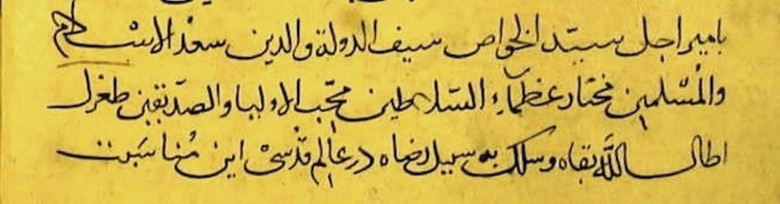 بامیر اجل سیّد الخواص سیف الدولة والدین سعد الاسلام
والمُسْلمین مختار عظمآء السّلاطین محّب الاولیا والصدّیقین طغرل
اطال اللّه بقاه وسلک به سبیل رضاه در عالم قُدْسیْ این مُناسَبت